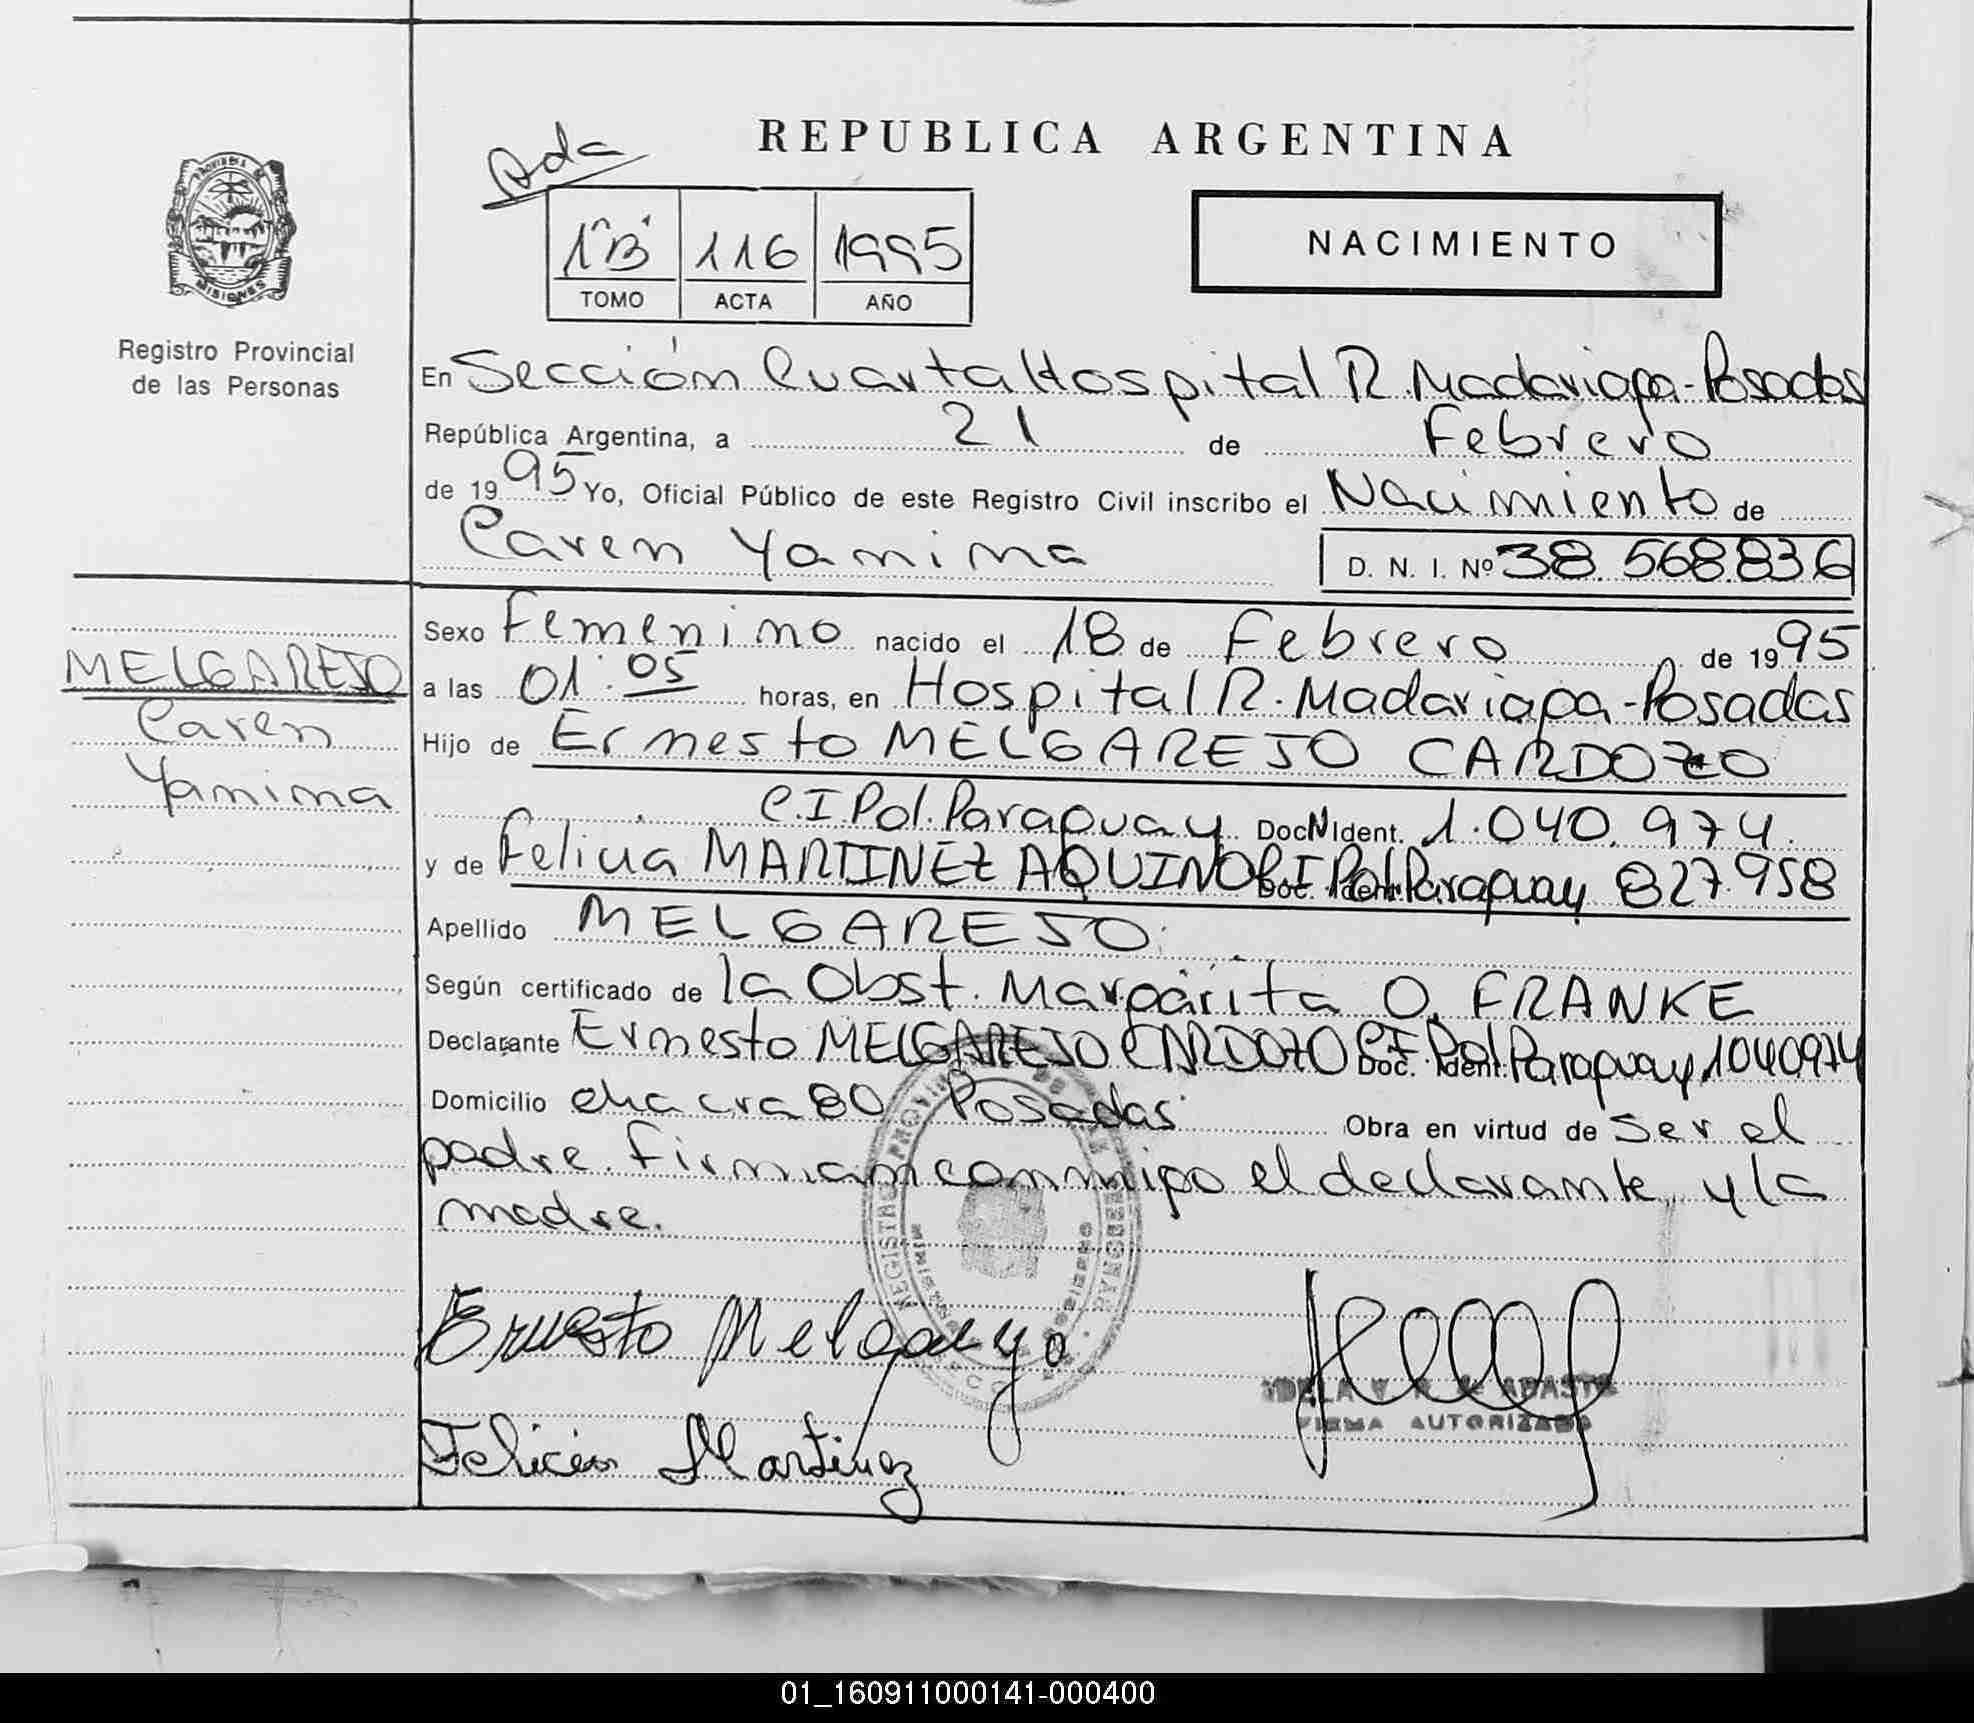 REPUBLICA ARGENTINA
Ada
1"B" 116 1995
TOMO ACTA AÑO
NACIMIENTO
PROVINCIA DE
MISIONES
Registro Provincial
de las Personas
En Sección Cuarta Hospital R. Madariaga-Posadas
República Argentina, a 21 de Febrero
de 1995 Yo, Oficial Público de este Registro Civil inscribo el Nacimiento de
Caren Yanina D. N. I. Nº 38.568.836
Sexo Femenino nacido el 18 de Febrero de 1995
MELGAREJO
Caren
Yanina
a las 01:05 horas, en Hospital R. Madariaga-Posadas
Hijo de Ernesto MELGAREJO CARDOZO
C.I Pol. Paraguay Doc N Ident. 1.040.974.
y de Felicia MARTINEZ AQUINO Doc. Ident. C.I Pol Paraguay 827.958
Apellido MELGAREJO
Según certificado de la Obst. Margarita O. FRANKE
Declarante Ernesto MELGAREJO CARDOZO Doc. Ident. C.I. Pol Paraguay 1040974
Domicilio chacra 80 Posadas Obra en virtud de ser el
padre. Firman conmigo el declarante y la
madre.
REGISTRO PROVINCIAL DE LAS
Ernesto Melgarejo
Felicia Martinez
FIRMA AUTORIZADA
01_160911000141-000400